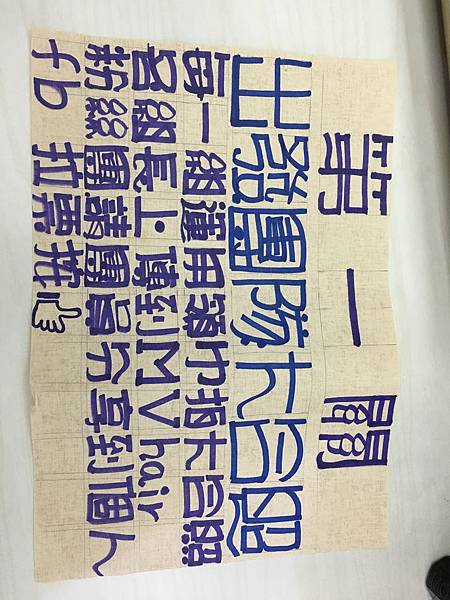 第一關
出發團隊大合照
每一組運用頭巾拍大合照
各組長上傳到MV hair
粉絲團請團員分享到個人
fb 拉票按